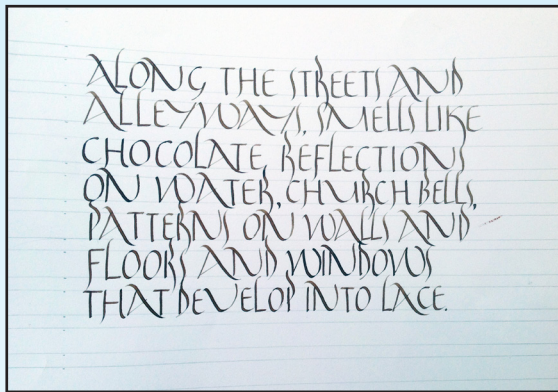 ALONG THE STREETS AND
ALLEYWAYS, SMELLS LIKE
CHOCOLATE, REFLECTIONS
ON WATER, CHURCH BELLS,
PATTERNS ON WALLS AND
FLOORS AND WINDOWS
THAT DEVELOP INTO LACE.